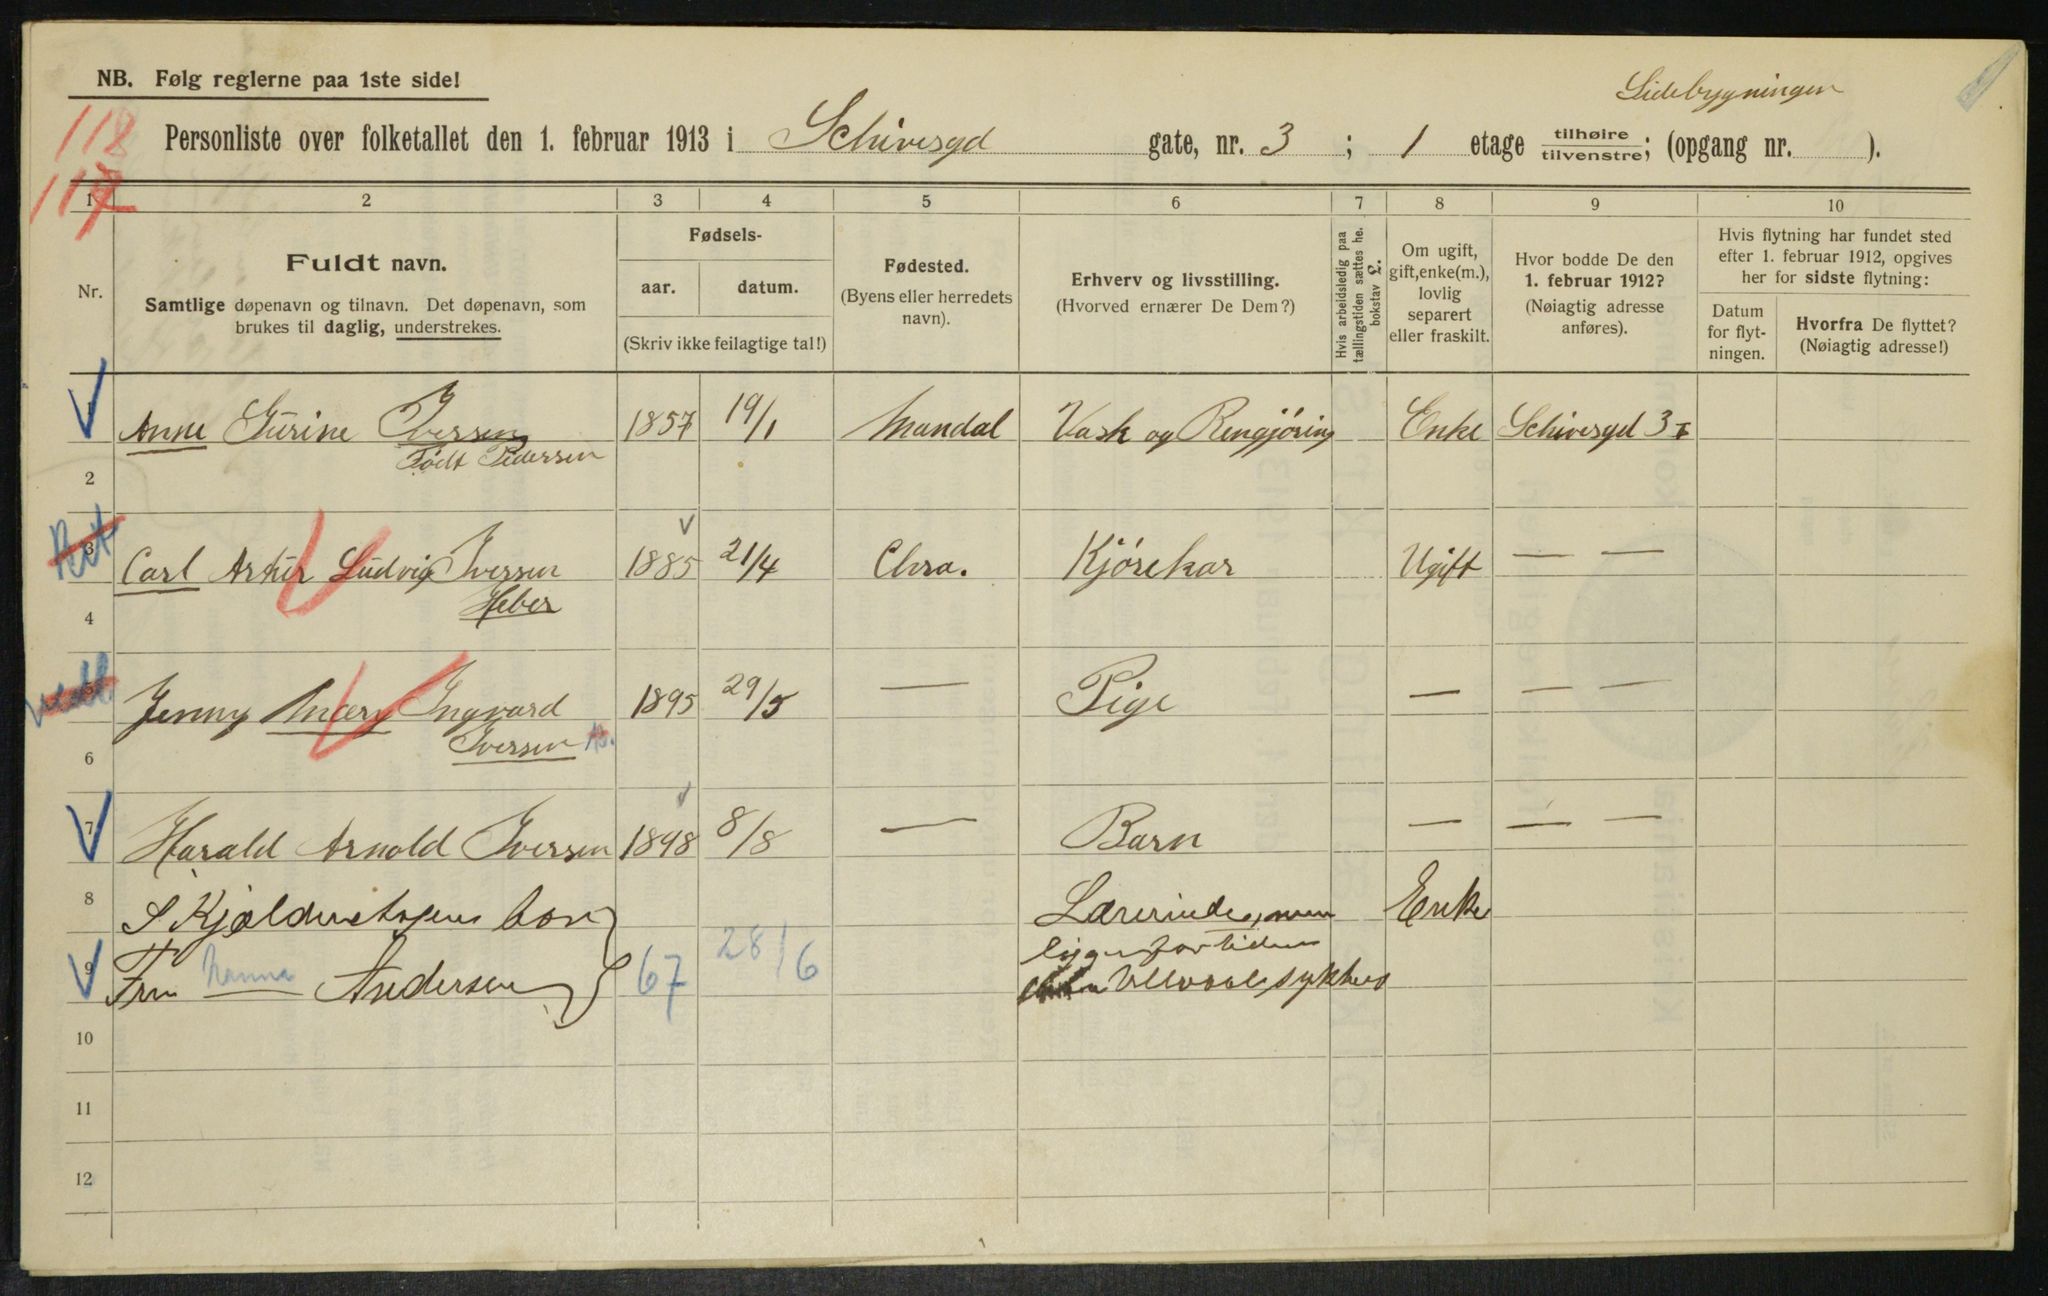 Sidebygningen
NB. Følg reglerne paa 1ste side!
118
117
Personliste over folketallet den 1. februar 1913 i Schivesgd gate, nr. 3 ; 1 etage tilhøire tilvenstre; (opgang nr. ).
1 2 3 4 5 6 7 8 9 10
Nr.
Fuldt navn.
Samtlige døpenavn og tilnavn. Det døpenavn, som
brukes til daglig, understrekes.
Fødsels-
aar. datum.
(Skriv ikke feilagtige tal!)
Fødested.
(Byens eller herredets
navn).
Erhverv og livsstilling.
(Hvorved ernærer De Dem?)
Hvis arbeidsledig paa
tællingstiden sættes he.
bokstav L.
Om ugift,
gift, enke(m.),
lovlig
separert
eller fraskilt.
Hvor bodde De den
1. februar 1912?
(Nøiagtig adresse
anføres).
Hvis flytning har fundet sted
efter 1. februar 1912, opgives
her for sidste flytning:
Datum
for flyt-
ningen.
Hvorfra De flyttet?
(Nøiagtig adresse!)
1 Anne Turine Iversen 1857 19/1 Mandal Vask og Rengjøring Enke Schivesgd 3 I
Født Pedersen
2
3 Carl Artur Ludvig Iversen 1885 21/4 Chra. Kjørekar Ugift — —
Heber
4
5 Jenny Mary Ingvard 1895 29/5 — Pige — — —
Iversen
6
7 Harald Arnold Iversen 1898 8/8 — Barn — — —
8 Lærerinde, men Enke
9 Fru Nanna Andersen 67 28/6 ligger for tiden
Ullevaal sykhus
10
11
12